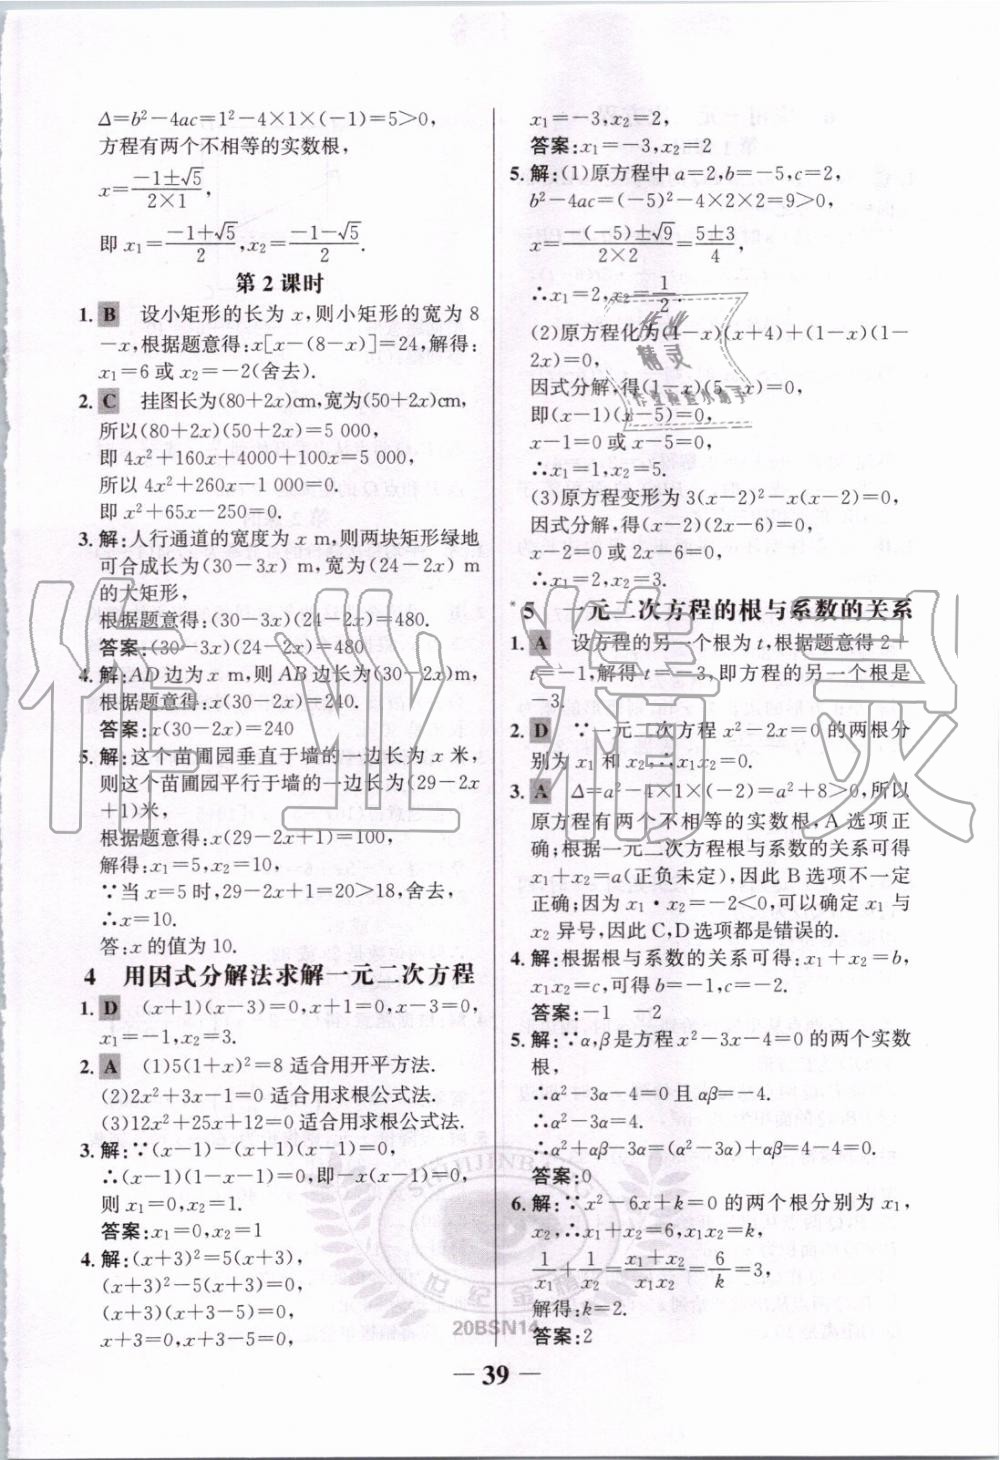 Δ=b²-4ac=1²-4×1×(-1)=5>0,
方程有两个不相等的实数根,
x=(-1±√5)/(2×1),
即 x₁=(-1+√5)/2,x₂=(-1-√5)/2.
第 2 课时
1. B 设小矩形的长为 x,则小矩形的宽为 8
-x,根据题意得:x[x-(8-x)]=24,解得:
x₁=6 或 x₂=-2(舍去).
2. C 挂图长为(80+2x)cm,宽为(50+2x)cm,
所以(80+2x)(50+2x)=5 000,
即 4x²+160x+4000+100x=5 000,
所以 4x²+260x-1 000=0.
即 x²+65x-250=0.
3. 解:人行通道的宽度为 x m,则两块矩形绿地
可合成长为(30-3x) m,宽为(24-2x) m
的大矩形,
根据题意得:(30-3x)(24-2x)=480.
答案:(30-3x)(24-2x)=480
4. 解:AD 边为 x m,则 AB 边长为(30-2x)m,
根据题意得:x(30-2x)=240.
答案:x(30-2x)=240
5. 解:这个苗圃园垂直于墙的一边长为 x 米,
则这个苗圃园平行于墙的一边长为(29-2x
+1)米,
根据题意得:x(29-2x+1)=100,
解得:x₁=5,x₂=10,
∵当 x=5 时,29-2x+1=20>18,舍去,
∴x=10.
答:x 的值为 10.
4 用因式分解法求解一元二次方程
1. D (x+1)(x-3)=0,x+1=0,x-3=0,
x₁=-1,x₂=3.
2. A (1)5(1+x)²=8 适合用开平方法.
(2)2x²+3x-1=0 适合用求根公式法.
(3)12x²+25x+12=0 适合用求根公式法.
3. 解:∵(x-1)-(x+1)(x-1)=0,
∴(x-1)(1-x-1)=0,即-x(x-1)=0,
则 x₁=0,x₂=1.
答案:x₁=0,x₂=1
4. 解:(x+3)²=5(x+3),
(x+3)²-5(x+3)=0,
(x+3)(x+3-5)=0,
x+3=0,x+3-5=0,
x₁=-3,x₂=2,
答案:x₁=-3,x₂=2
5. 解:(1)原方程中 a=2,b=-5,c=2,
b²-4ac=(-5)²-4×2×2=9>0,
x=(-(-5)±√9)/(2×2)=(5±3)/4,
∴x₁=2,x₂=1/2.
(2)原方程化为(1-x)(x+4)+(1-x)(1-
2x)=0,
因式分解,得(1-x)(5-x)=0,
即(x-1)(x-5)=0,
x-1=0 或 x-5=0,
∴x₁=1,x₂=5.
(3)原方程变形为 3(x-2)²-x(x-2)=0,
因式分解,得(x-2)(2x-6)=0,
x-2=0 或 2x-6=0,
∴x₁=2,x₂=3.
*5 一元二次方程的根与系数的关系
1. A 设方程的另一个根为 t,根据题意得 2+
t=-1,解得 t=-3,即方程的另一个根是
-3.
2. D ∵一元二次方程 x²-2x=0 的两根分
别为 x₁ 和 x₂,∴x₁x₂=0.
3. A Δ=a²-4×1×(-2)=a²+8>0,所以
原方程有两个不相等的实数根,A 选项正
确;根据一元二次方程根与系数的关系可得
x₁+x₂=a(正负未定),因此 B 选项不一定
正确;因为 x₁·x₂=-2<0,可以确定 x₁ 与
x₂ 异号,因此 C,D 选项都是错误的.
4. 解:根据根与系数的关系可得:x₁+x₂=b,
x₁x₂=c,可得 b=-1,c=-2.
答案:-1 -2
5. 解:∵α,β是方程 x²-3x-4=0 的两个实数
根,
∴α²-3α-4=0 且 αβ=-4.
∴α²-3α=4.
∴α²+αβ-3α=(α²-3α)+αβ=4-4=0.
答案:0
6. 解:∵x²-6x+k=0 的两个根分别为 x₁,
x₂,∴x₁+x₂=6,x₁x₂=k,
1/x₁+1/x₂=(x₁+x₂)/(x₁x₂)=6/k=3,
解得:k=2.
答案:2
作业精灵
作业
精灵
作业检查小帮手
SHIJIJINBANG
世纪金榜
20BSN14
— 39 —